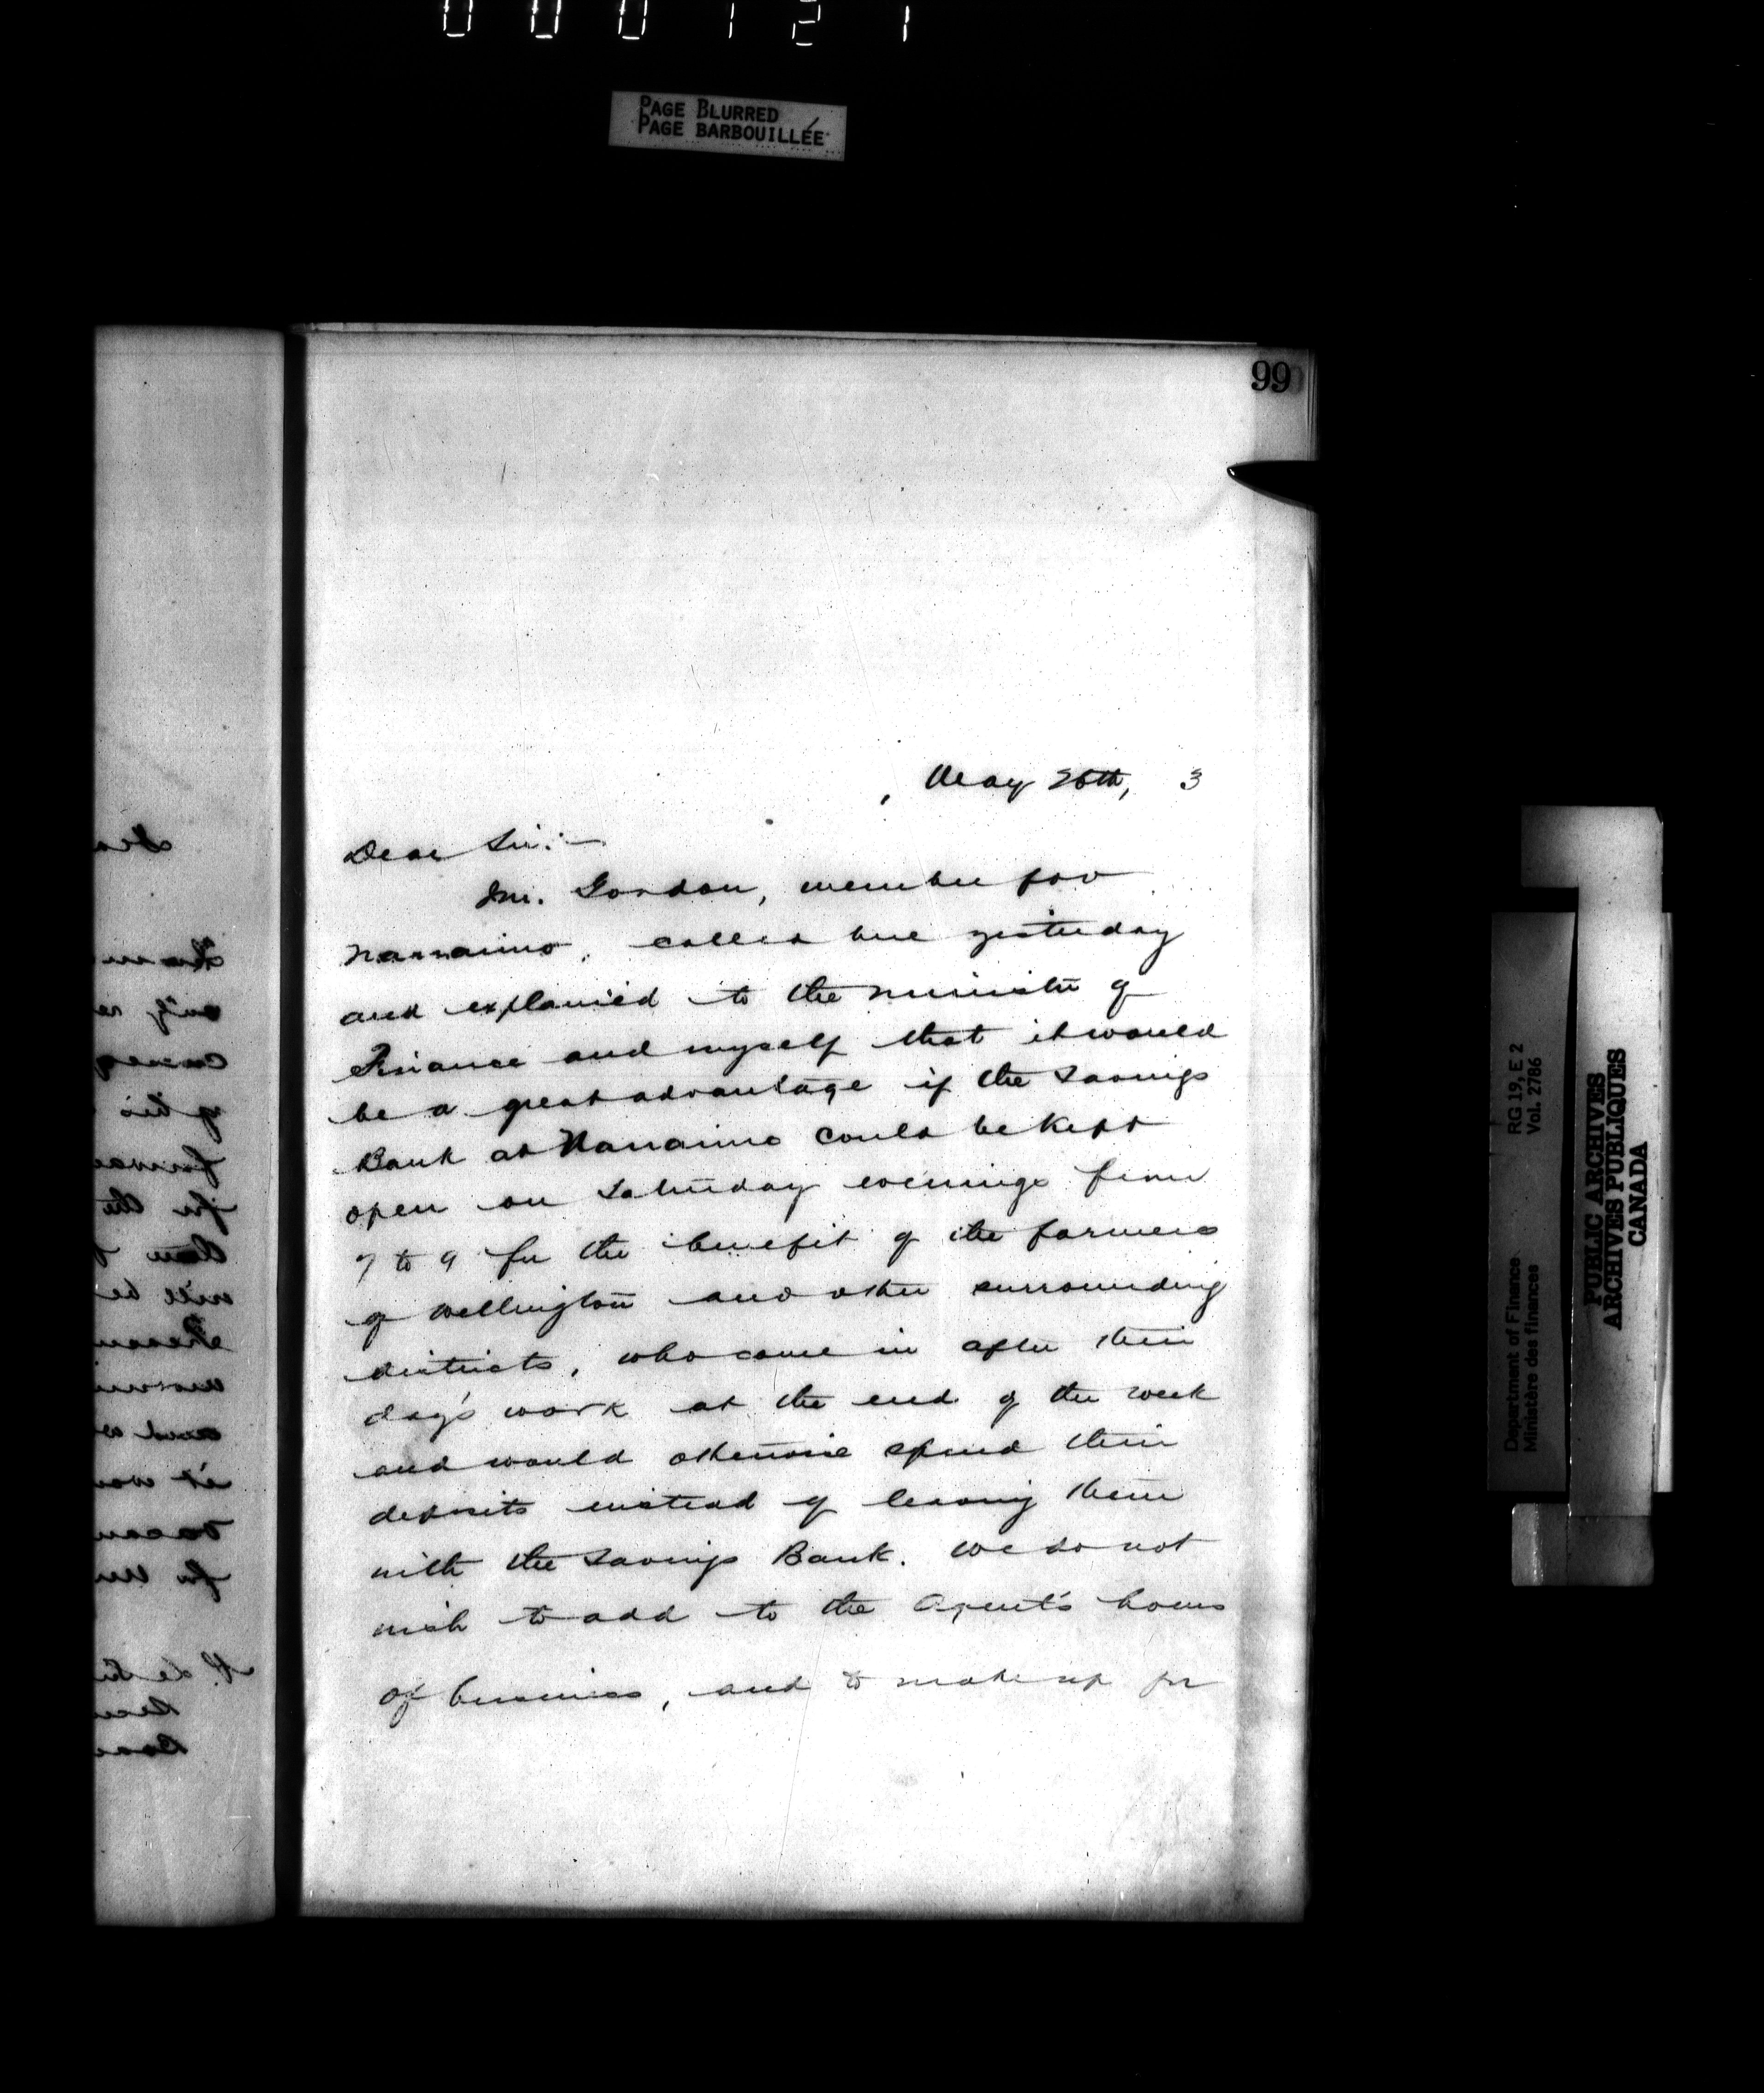 000121
PAGE BLURRED
PAGE BARBOUILLÉE
99
, May 26th, 3
Dear Sir:—
Mr. Gordon, member for
Nanaimo, called here yesterday
and explained to the Minister of
Finance and myself that it would
be a great advantage if the Savings
Bank at Nanaimo could be kept
open on Saturday evenings from
7 to 9 for the benefit of the farmers
of Wellington and other surrounding
districts, who come in after their
day's work at the end of the week
and would otherwise spend their
deposits instead of leaving them
with the Savings Bank. We do not
wish to add to the Agent's hours
of business, and to make up for
RG 19, E 2
Vol. 2786
Department of Finance
Ministère des finances
PUBLIC ARCHIVES
ARCHIVES PUBLIQUES
CANADA